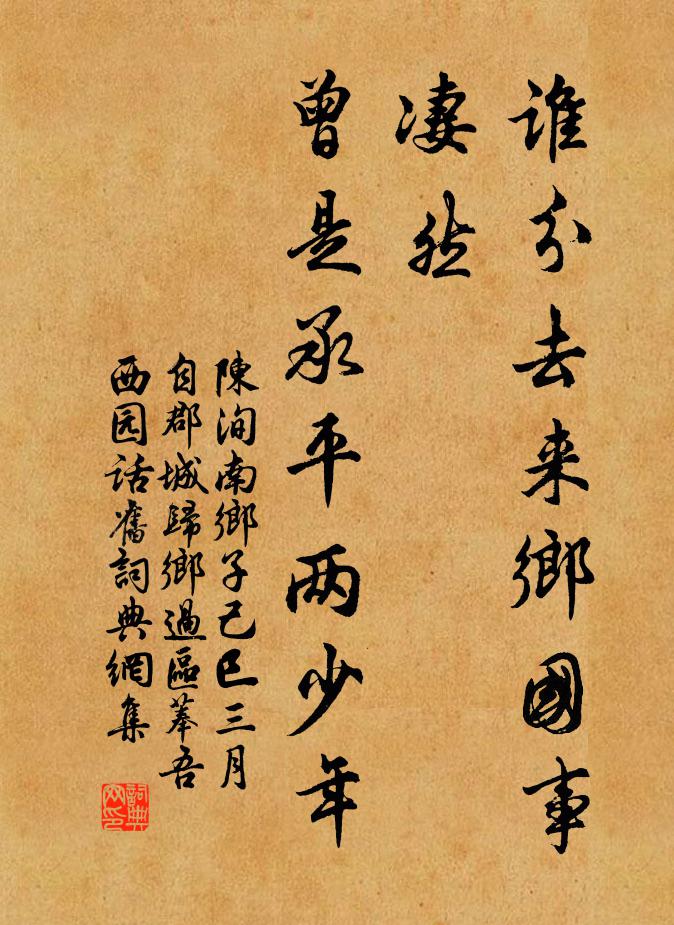 誰分去来鄉國事
凄然
曾是承平两少年
陳洵南鄉子己巳三月
自郡城歸鄉過區菶吾
西园話舊詞典網集
詞典
网印